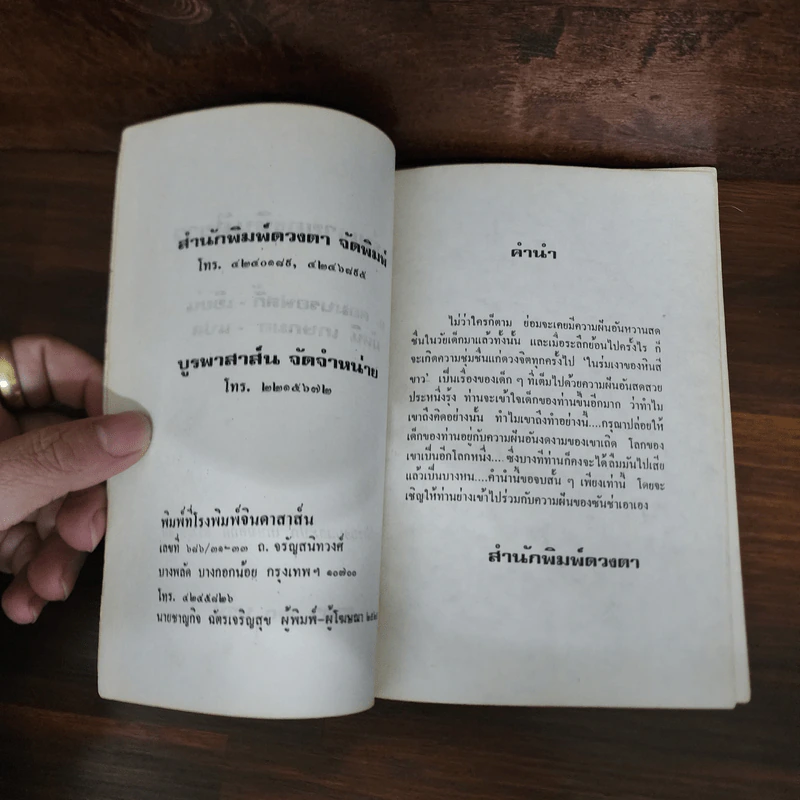 สำนักพิมพ์ดวงตา จัดพิมพ์
โทร. ๔๒๔๐๑๘๙, ๔๒๔๖๘๙๕
บูรพาสาส์น จัดจำหน่าย
โทร. ๒๒๑๕๖๗๒
พิมพ์ที่โรงพิมพ์จินดาสาส์น
เลขที่ ๖๘๖/๓๑-๓๓ ถ. จรัญสนิทวงศ์
บางพลัด บางกอกน้อย กรุงเทพฯ ๑๐๗๐๐
โทร. ๔๒๔๕๘๒๖
นายชาญกิจ ฉัตรเจริญสุข ผู้พิมพ์-ผู้โฆษณา
คำนำ
ไม่ว่าใครก็ตาม ย่อมจะเคยมีความฝันอันหวานสด
ชื่นในวัยเด็กมาแล้วทั้งนั้น และเมื่อระลึกย้อนไปครั้งไร ก็
จะเกิดความชุ่มชื่นแก่ดวงจิตทุกครั้งไป 'ในร่มเงาของหินสี
ขาว' เป็นเรื่องของเด็ก ๆ ที่เต็มไปด้วยความฝันอันสดสวย
ประหนึ่งรุ้ง ท่านจะเข้าใจเด็กของท่านขึ้นอีกมาก ว่าทำไม
เขาถึงคิดอย่างนั้น ทำไมเขาถึงทำอย่างนี้....กรุณาปล่อยให้
เด็กของท่านอยู่กับความฝันอันงดงามของเขาเถิด โลกของ
เขาเป็นอีกโลกหนึ่ง.... ซึ่งบางทีท่านก็คงจะได้ลืมมันไปเสีย
แล้วเป็นบางหน....คำนำนี้ขอจบสั้น ๆ เพียงเท่านี้ โดยจะ
เชิญให้ท่านย่างเข้าไปร่วมกับความฝันของซันช่าเอาเอง
สำนักพิมพ์ดวงตา